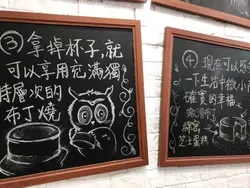 ③拿掉杯子,就
可以享用充滿獨
特層次的
布丁燒
④現在可以
一下生活中微小而
確實的幸福
芝士蛋糕